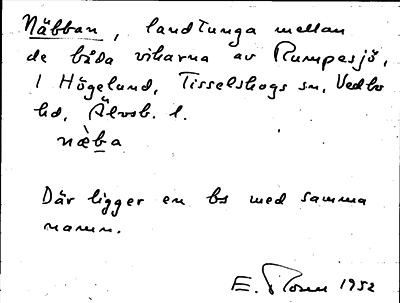 Näbban, landtunga mellan
de båda vikarna av Rumpesjö,
1 Högelund, Tisselskogs sn, Vedbo
hd, Älvsb. l.
næ̀ba
Där ligger en bs med samma
namn.
E. 1952